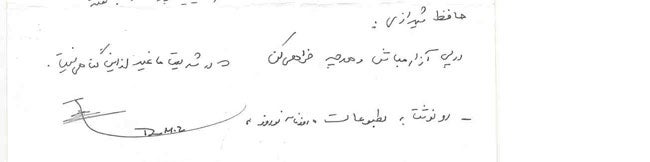 حافظ شیرازی :
در پی آزار مباش و هرچه خواهی کن    که در شریعت ما غیر از این گناهی نیست.
- رونوشت به مطبوعات ، روزنامه نوروز ،
D.M.Z